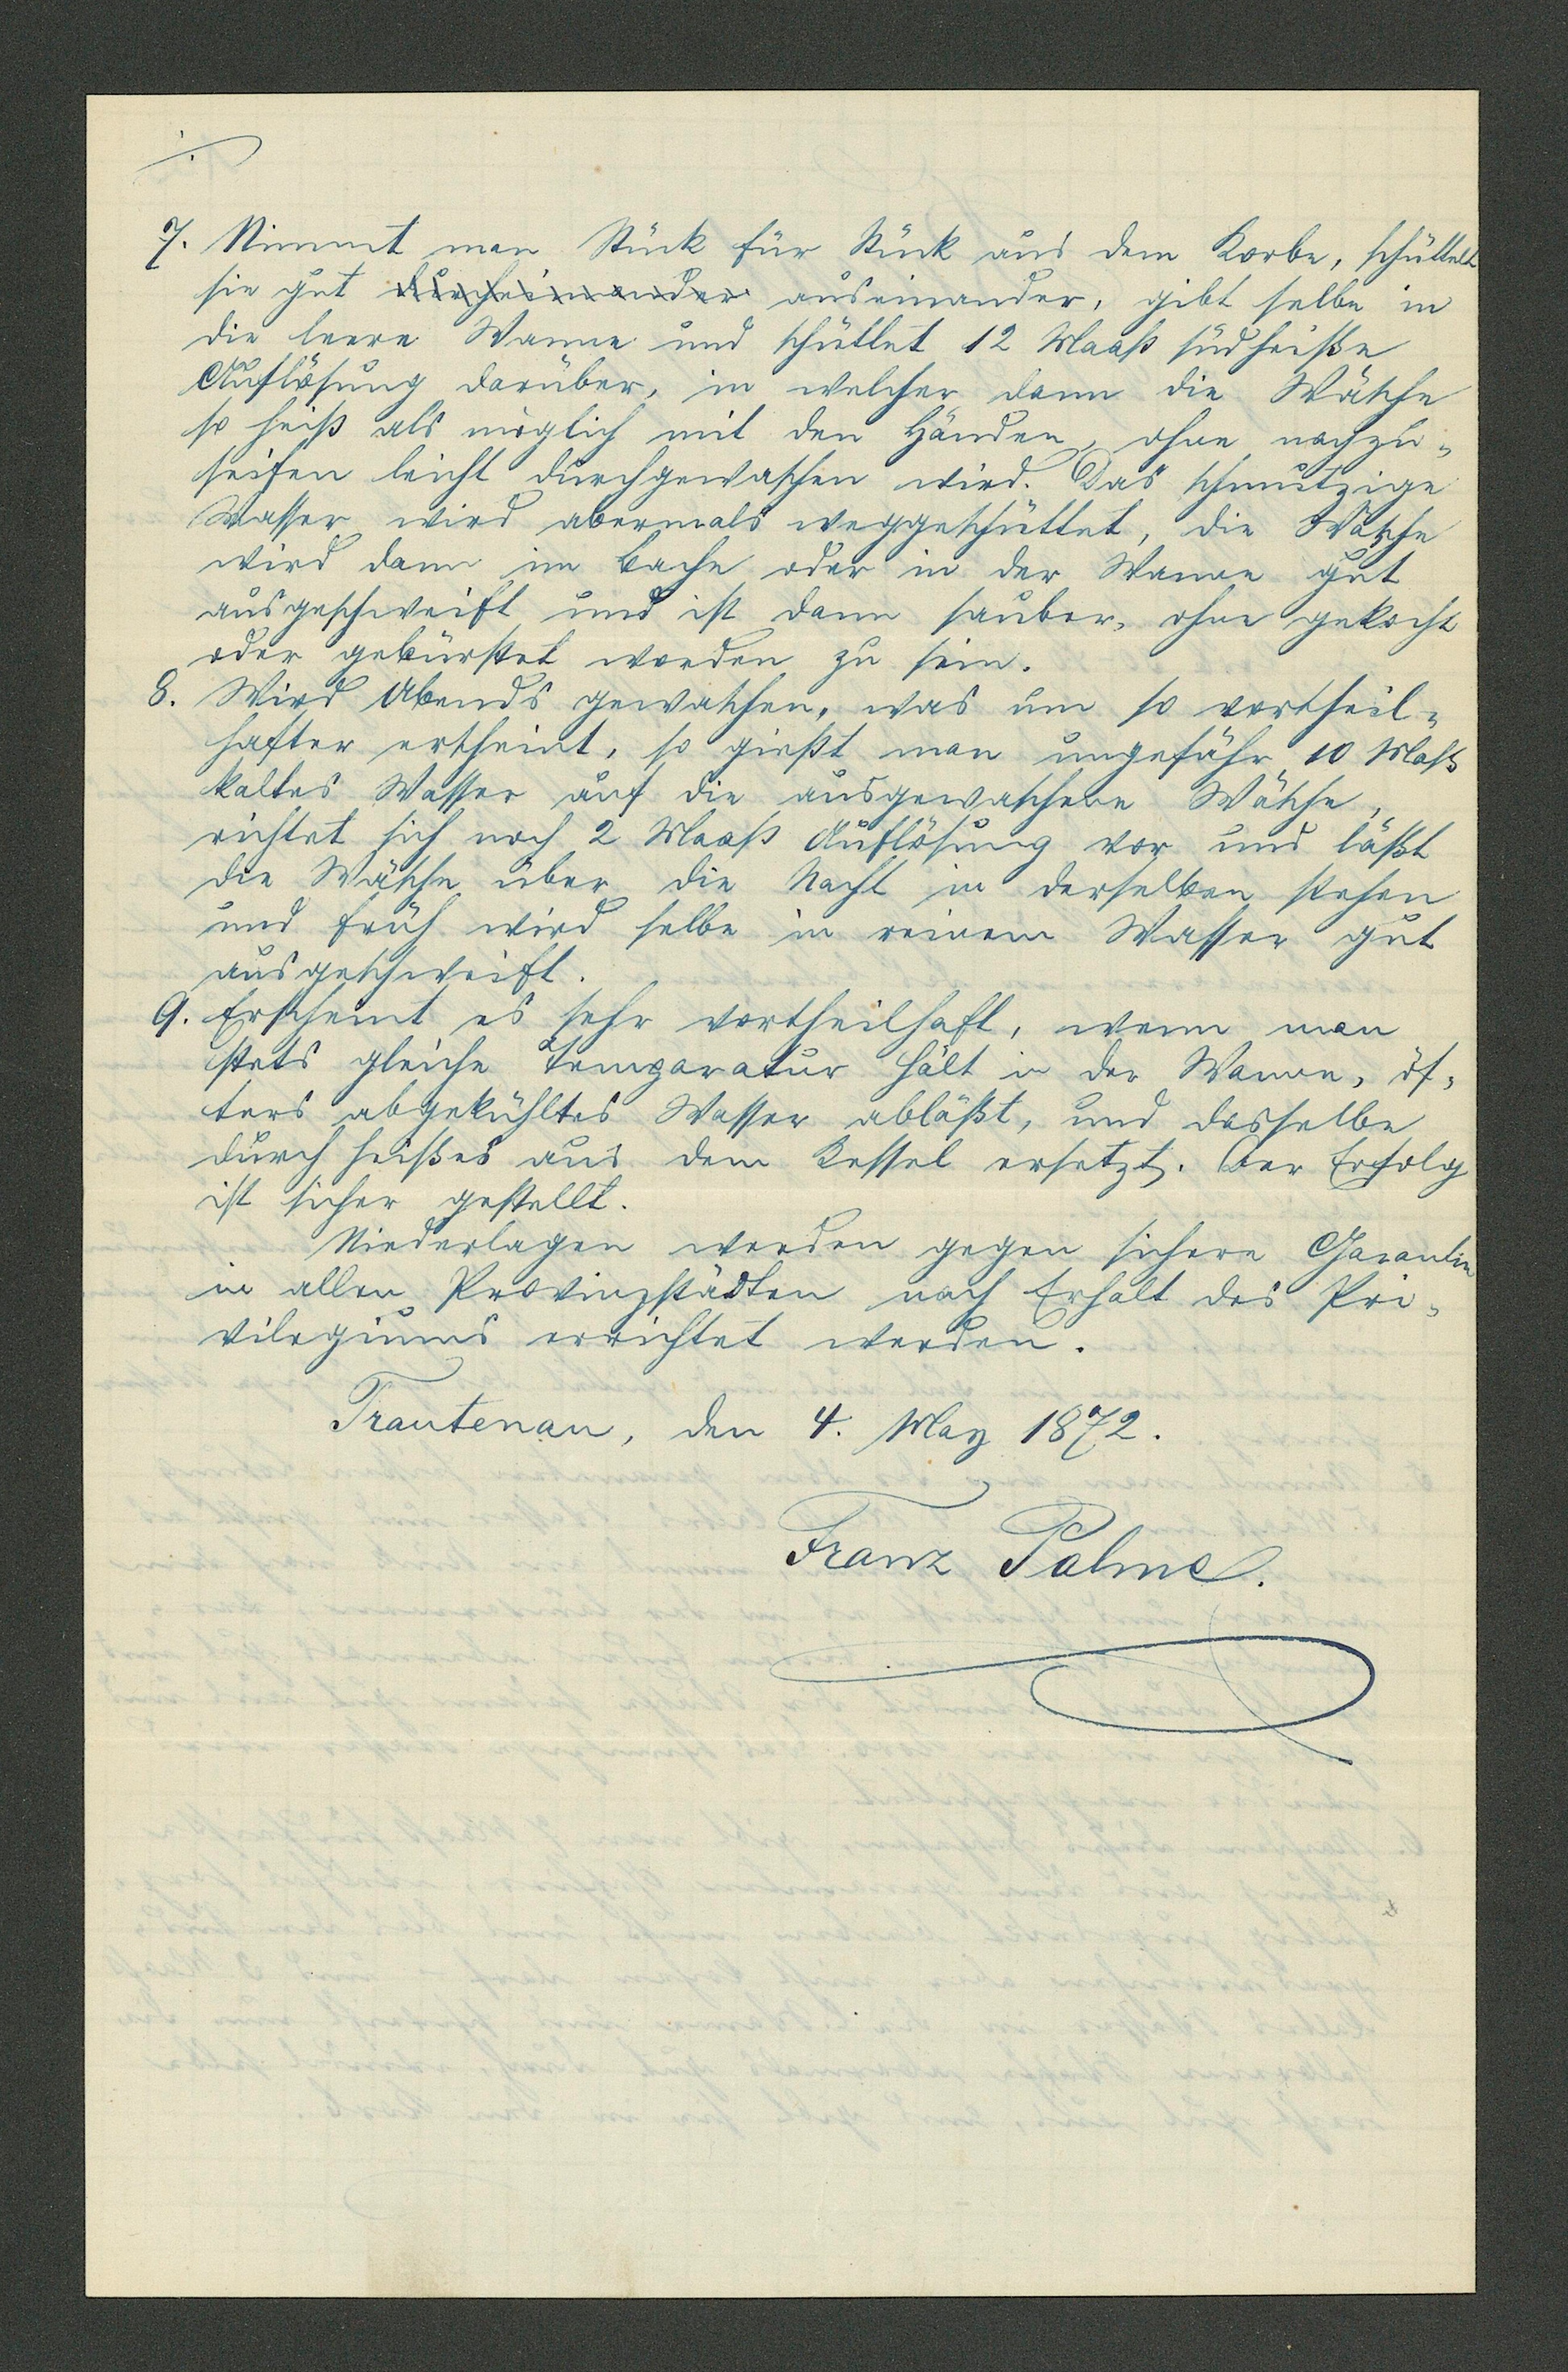 7. Nimmt man Stück für Stück aus dem Korbe, schüttelt
sie gut durcheinander auseinander, gibt selbe in
die leere Wanne und schüttet 12 Maaß südheiße
Auflösung darüber, in welcher dann die Wäsche
so heiß als möglich mit den Händen, ohne nachzu-
seifen leicht durchgewaschen wird. Das schmutzige
Wasser wird abermals weggeschüttet, die Wäsche
wird dann im Bache oder in der Wanne gut
ausgeschweift und ist dann sauber, ohne gekocht
oder gebürstet worden zu sein.
8. Wird Abends gewaschen, was um so vortheil-
hafter erscheint, so gießt man ungefähr 10 Maß
kaltes Wasser auf die ausgewaschene Wäsche,
richtet sich noch 2 Maaß Auflösung vor und läßt
die Wäsche über die Nacht in derselben stehen
und früh wird selbe in reinem Wasser gut
ausgeschweift.
9. Erscheint es sehr vortheilhaft, wenn man
stets gleiche Temparatur hält in der Wanne, öf-
ters abgekühltes Wasser abläßt, und dasselbe
durch heißes aus dem Kessel ersetzt. Der Erfolg
ist sicher gestellt.
Niederlagen werden gegen sichere Garantie
in allen Provinzstädten nach Erhalt des Pri-
vilegiums errichtet werden.
Trautenau, den 4. May 1872.
Franz Palme.